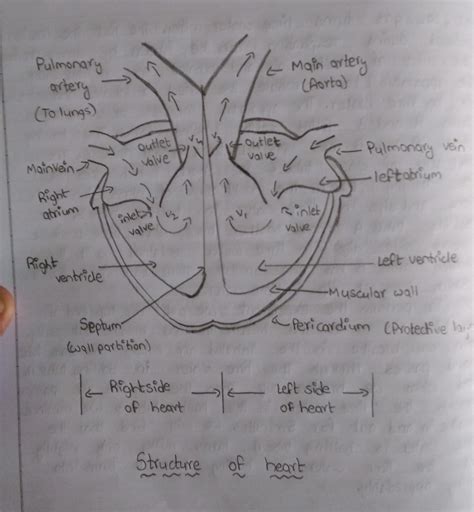 Pulmonary
artery
(To lungs)
Main artery
(Aorta)
outlet
valve
outlet
valve
Pulmonary vein
Mainvein
left atrium
Right
atrium
inlet
valve
V2
V1
inlet
valve
Right
ventricle
Left ventricle
Muscular wall
Septum
(wall partition)
Pericardium (Protective
Rightside
of heart
Left side
of heart
Structure of heart